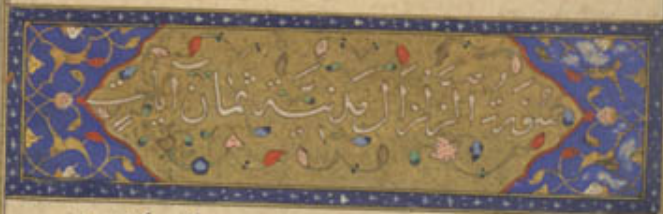 سُورَةُ الزِّلزَال مَدَنِيَّة ثَمَان آيَاتٍ